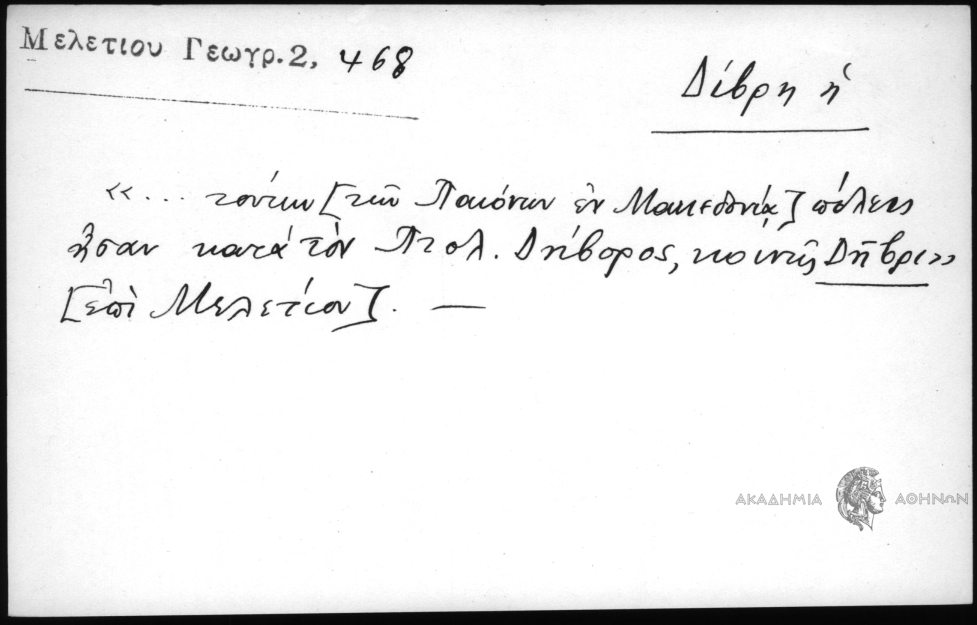 Μελετίου Γεωγρ. 2, 468
Δίβρη ἡ
«... τούτων [τῶν Παιόνων ἐν Μακεδονίᾳ] πόλεις
ἦσαν κατὰ τὸν Πτολ. Δήβορος, κοινῶς Δῆβρι»
[ἐπὶ Μελετίου]. —
ΑΚΑΔΗΜΙΑ ΑΘΗΝΩΝ